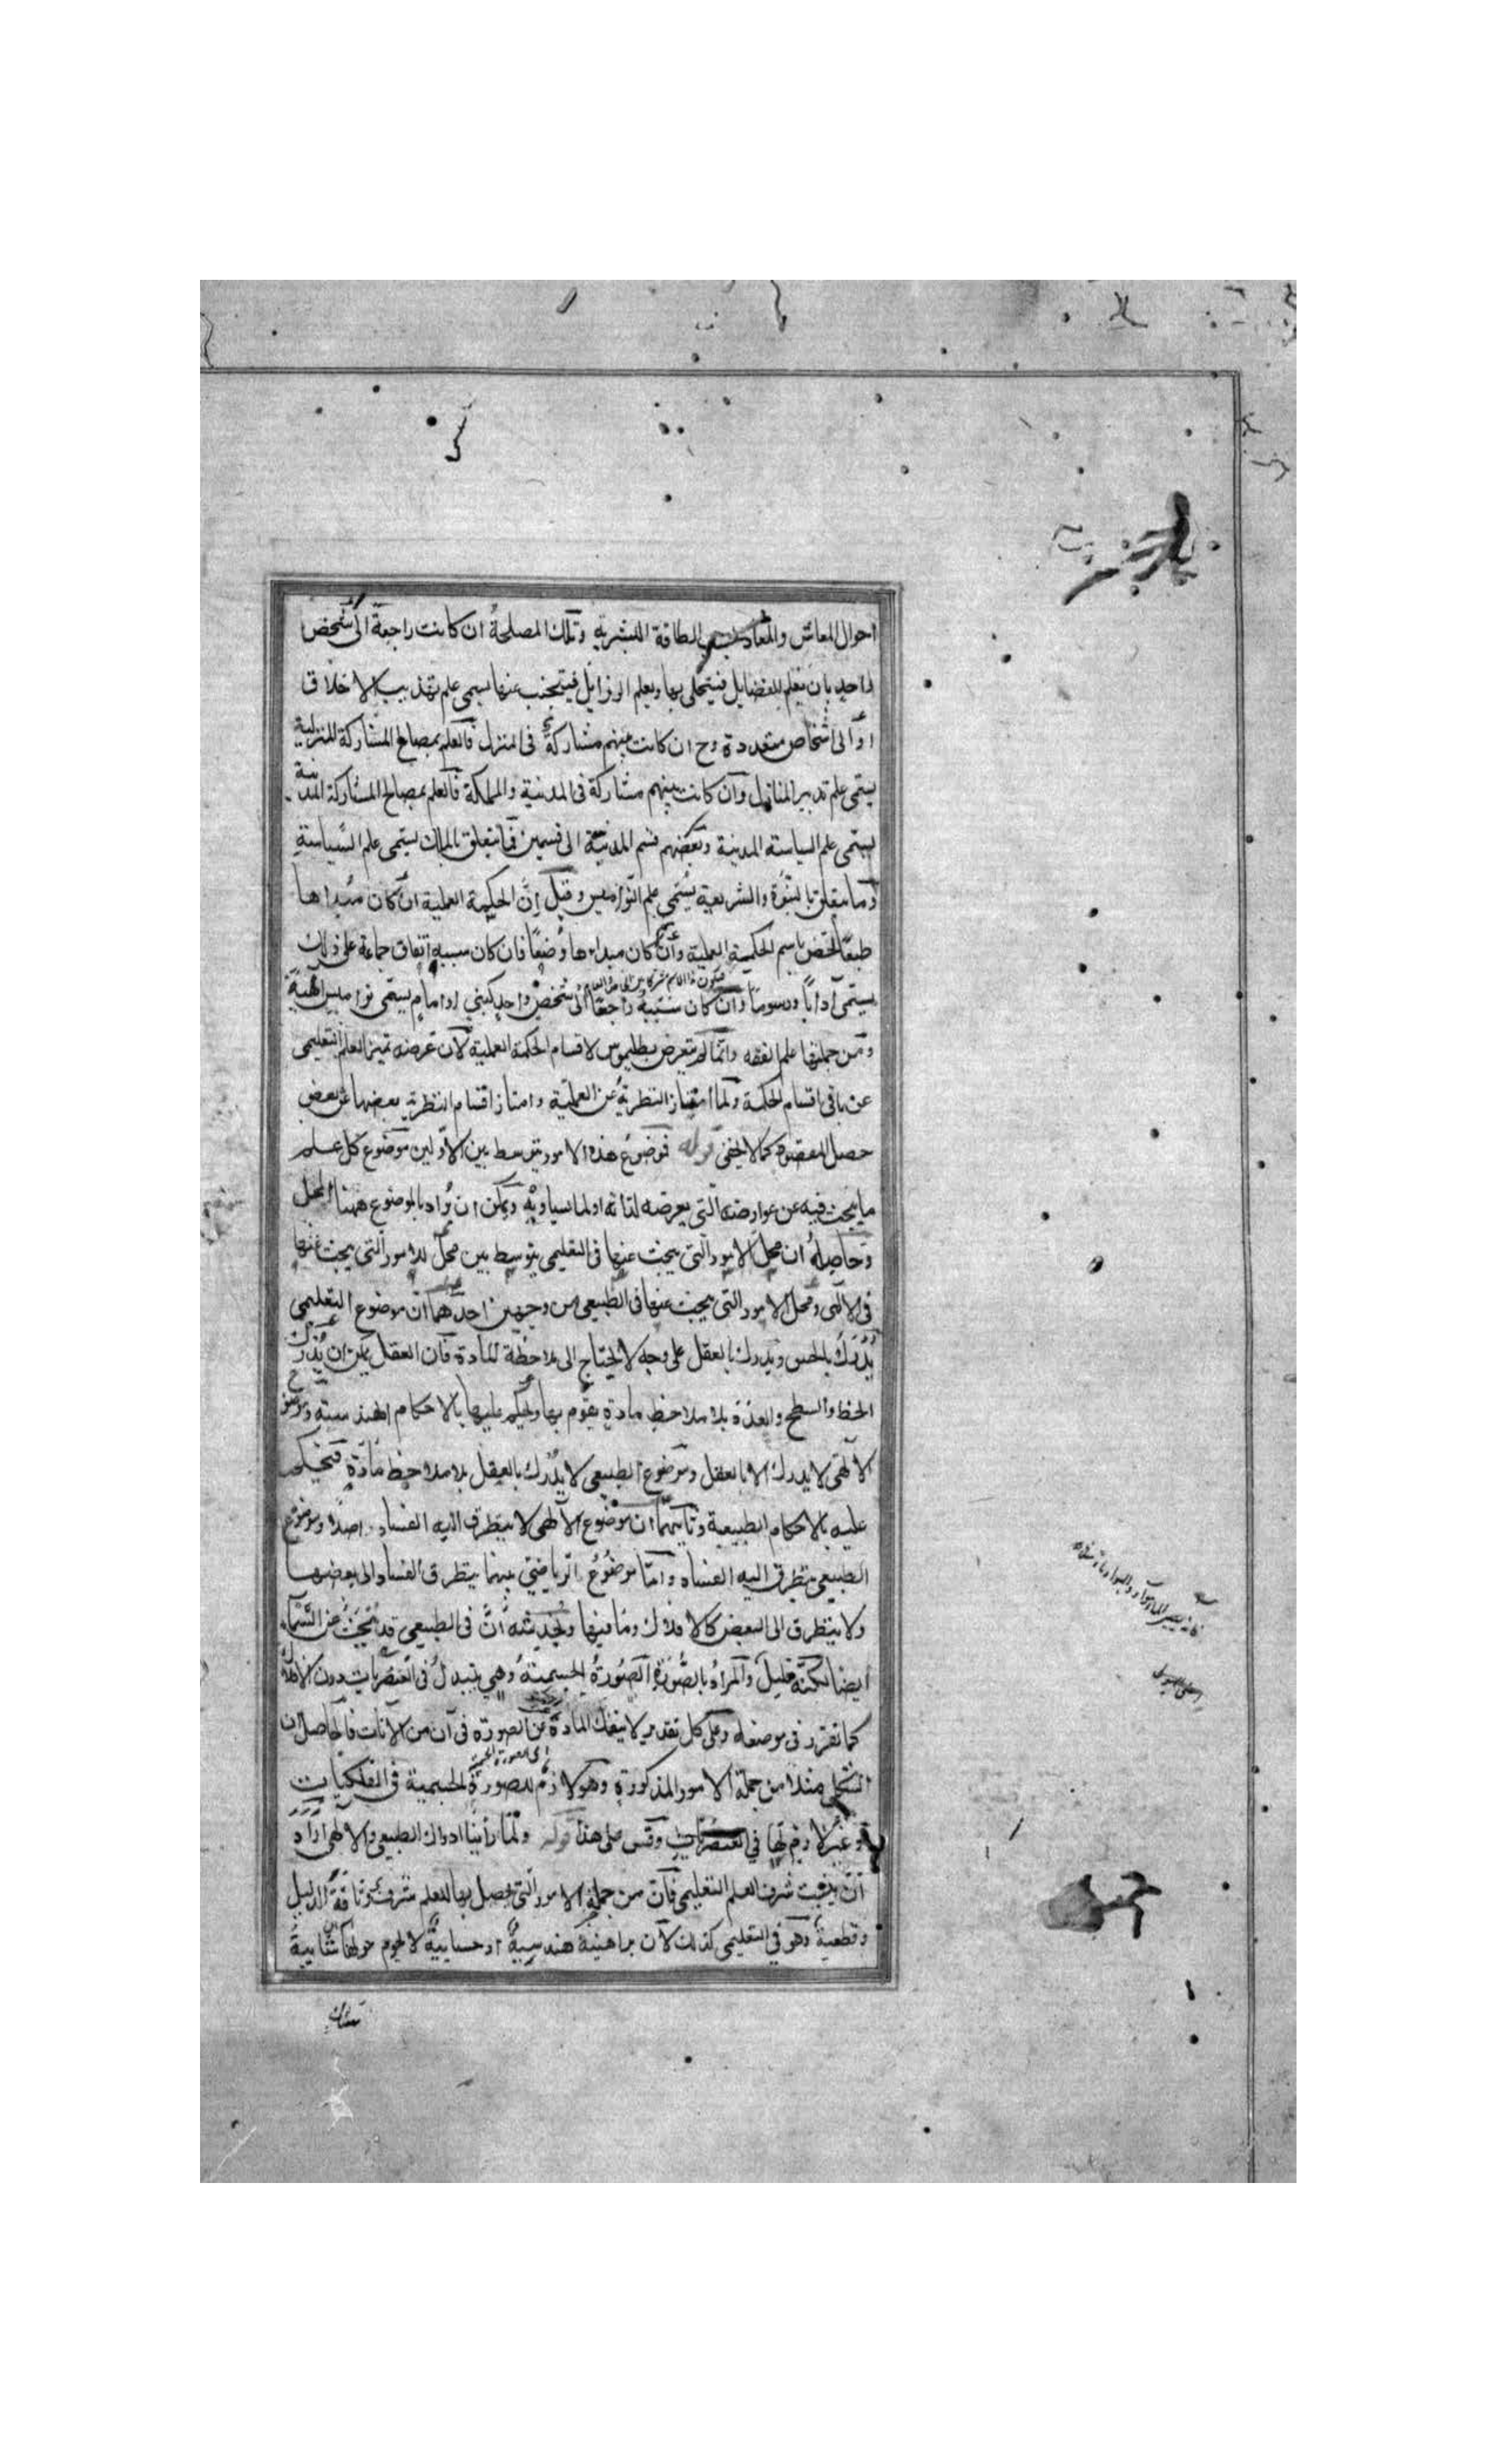 احوال المعاش والمعاد بحسب الطاقة البشرية وتلك المصلحة ان كانت راجعة الى شخص
واحد بان يعلم الفضايل فيتحلى بها ويعلم الرزايل فيتجنب عنها يسمى علم تهذيب الاخلاق
او الى اشخاص متعددة وح ان كانت بينهم مشاركة فى المنزل فالعلم بمصالح المشاركة المنزلية
يسمى علم تدبير المنازل وان كانت بينهم مشاركة فى المدينة والمملكة فالعلم بمصالح المشاركة المدنية
يسمى علم السياسة المدينة وبعضهم قسم المدنية الى قسمين فما يتعلق بالملك يسمى علم السياسة
وما يتعلق بالنبوة والشريعة يسمى علم النواميس وقيل ان الحكمة العملية ان كان مبداها
طبعا اختص باسم الحكمة العملية وان كان مبداءها وضعا فان كان سببه اتفاق جماعة على ذلك
يسمى آدابا ورسوما وان كان سببه راجعا الى شخص واحد كنبي او امام يسمى نواميس الهية
ومن جملتها علم الفقه وانما لم يتعرض بطليموس لاقسام الحكمة العملية لان غرضه تميز العلم التعليمى
عن باقى اقسام الحكمة ولما امتياز النظرية عن العملية وامتاز اقسام النظرية بعضها عن بعض
حصل المقصود كما لا يخفى قوله فموضوع هذه الامور يتوسط بين الاولين موضوع كل علم
ما يبحث فيه عن عوارضه التى يعرضه لذاته او لما يساويه ويمكن ان يراد بالموضوع ههنا المحل
وحاصله ان محل الامور التى يبحث عنها فى التعليمى يتوسط بين محل الامور التى يبحث عنها
فى الالهى ومحل الامور التى يبحث عنها فى الطبيعى من وجهين احدهما ان موضوع التعليمى
يدرك بالحس ويدرك بالعقل على وجه لا يحتاج الى ملاحظة المادة فان العقل يمكن ان يدرك
الخط والسطح والعدد بلا ملاحظ مادة يقوم بها ويحكم عليها بالاحكام الهندسية وموضوع
الالهى لا يدرك الا بالعقل وموضوع الطبيعى لا يدرك بالعقل بلا ملاحظ مادة فيحكم
عليه بالاحكام الطبيعية وثانيهما ان موضوع الالهى لا يتطرق اليه الفساد اصلا وموضوع
الطبيعى يتطرق اليه الفساد واما موضوع الرياضى بينهما يتطرق الفساد الى بعضها
ولا يتطرق الى البعض كالافلاك وما فيها ويخدشه ان فى الطبيعى قد يبحث عن السماء
ايضا لكنه قليل والمراد بالصورة الصورة الجسمية وهي يتبدل فى العنصريات دون الافلاك
كما تقرر فى موضعه وعلى كل تقدير لا ينفك المادة عن الصورة فى آن من الآنات فالحاصل ان
الشكل مثلا من جملة الامور المذكورة وهو لازم للصورة الجسمية فى الفلكيات
وغير لازم لها في العنصريات وقس على هذا قوله ولما رأينا ادراك الطبيعى والالهى اراد
ان يثبت شرف العلم التعليمى فان من جملة الامور التى يحصل بها للعلم شرف وثاقة الدليل
وقطعية وهو في التعليمى كذلك لان براهينه هندسية او حسابية لا يحوم حولها شائبة